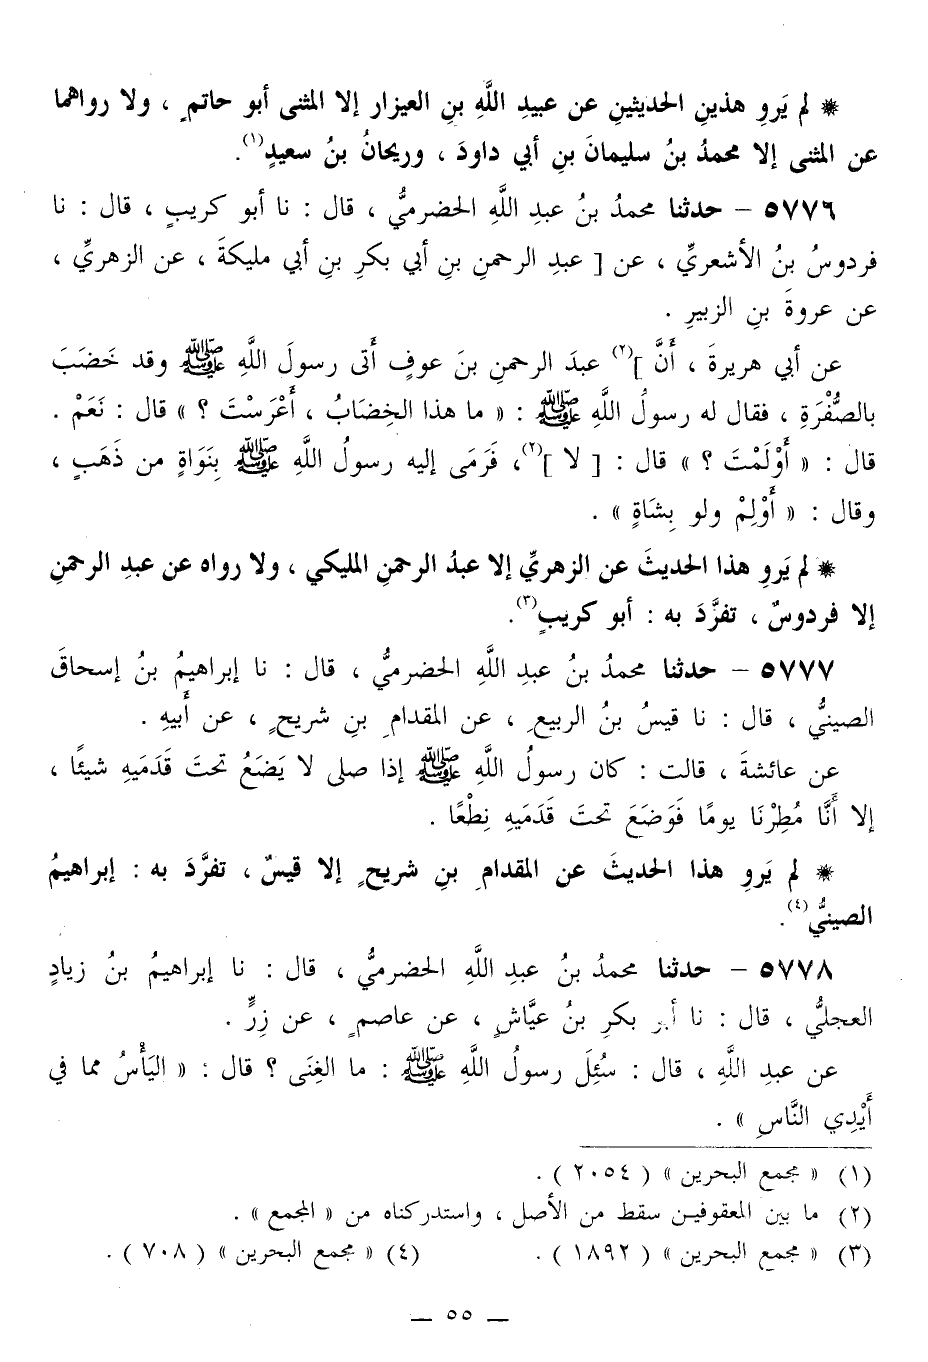 * لم يَروِ هذينِ الحديثينِ عن عبيدِ اللَّهِ بنِ العيزار إلا المثنى أبو حاتمٍ ، ولا رواهما
عن المثنى إلا محمدُ بنُ سليمانَ بنِ أبي داودَ ، وريحانُ بنُ سعيدٍ(١).
٥٧٧٦ – حدثنا محمدُ بنُ عبدِ اللَّهِ الحضرميُّ ، قال : نا أبو كريبٍ ، قال : نا
فردوسُ بنُ الأشعريِّ ، عن [ عبدِ الرحمنِ بنِ أبي بكرِ بنِ أبي مليكةَ ، عن الزهريِّ ،
عن عروةَ بنِ الزبيرِ .
عن أبي هريرةَ ، أَنَّ ](٢) عبدَ الرحمنِ بنَ عوفٍ أَتى رسولَ اللَّهِ ﷺ وقد خَضَبَ
بالصُّفْرَةِ ، فقال له رسولُ اللَّهِ ﷺ : « ما هذا الخِضَابُ ، أَعْرَسْتَ ؟ » قال : نَعَمْ .
قال : « أَوْلَمْتَ ؟ » قال : [ لا ](٢)، فَرَمَى إليه رسولُ اللَّهِ ﷺ بِنَوَاةٍ من ذَهَبٍ ،
وقال : « أَوْلِمْ ولو بِشَاةٍ » .
* لم يَروِ هذا الحديثَ عن الزهريِّ إلا عبدُ الرحمنِ المليكي ، ولا رواه عن عبدِ الرحمنِ
إلا فردوسٌ ، تفرَّدَ به : أبو كريبٍ(٣).
٥٧٧٧ – حدثنا محمدُ بنُ عبدِ اللَّهِ الحضرميُّ ، قال : نا إبراهيمُ بنُ إسحاقَ
الصينيُّ ، قال : نا قيسُ بنُ الربيعِ ، عن المقدامِ بنِ شريحٍ ، عن أَبيهِ .
عن عائشةَ ، قالت : كان رسولُ اللَّهِ ﷺ إذا صلى لا يَضَعُ تحتَ قَدَمَيهِ شيئًا ،
إلا أَنَّا مُطِرْنَا يومًا فَوَضَعَ تحتَ قَدَمَيهِ نِطْعًا .
* لم يَروِ هذا الحديثَ عن المقدامِ بنِ شريحٍ إلا قيسٌ ، تفرَّدَ به : إبراهيمُ
الصينيُّ(٤).
٥٧٧٨ – حدثنا محمدُ بنُ عبدِ اللَّهِ الحضرميُّ ، قال : نا إبراهيمُ بنُ زيادٍ
العجليُّ ، قال : نا أبو بكرِ بنُ عيَّاشٍ ، عن عاصمٍ ، عن زِرٍّ .
عن عبدِ اللَّهِ ، قال : سُئِلَ رسولُ اللَّهِ ﷺ : ما الغِنَى ؟ قال : « اليَأْسُ مما في
أَيْدِي النَّاسِ » .
(١) « مجمع البحرين » ( ٢٠٥٤ ) .
(٢) ما بين المعقوفين سقط من الأصل ، واستدركناه من « المجمع » .
(٣) « مجمع البحرين » ( ١٨٩٢ ) . (٤) « مجمع البحرين » ( ٧٠٨ ) .
— ٥٥ —